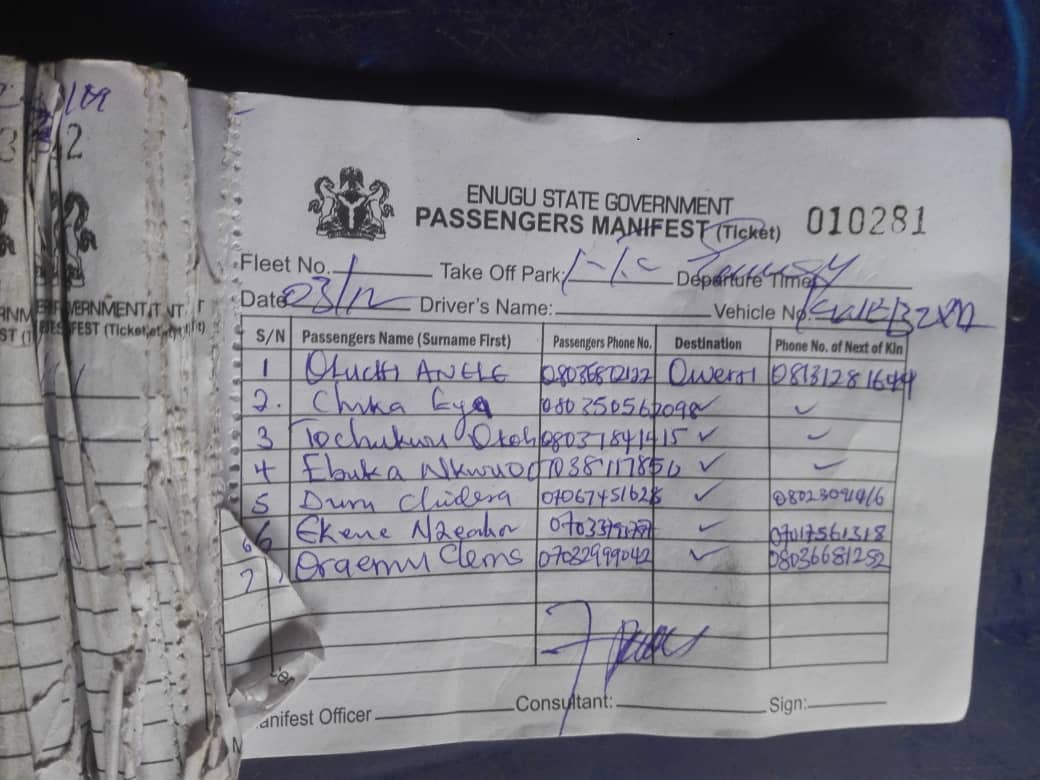 ENUGU STATE GOVERNMENT
PASSENGERS MANIFEST (Ticket) 010281
Fleet No. Take Off Park: Departure Time
Date 03/12 Driver's Name: Vehicle No.
S/N Passengers Name (Surname First) Passengers Phone No. Destination Phone No. of Next of Kin
1 Oluchi ANGLE 08036802122 Owerri 08131281644
2. Chika Eya 080350562098 ✓ ✓
3 Tochukwu Okoh 08037841415 ✓ ✓
4 Ebuka 07038117856 ✓ ✓
5 Duru Chidera 07067451628 ✓ 08023091416
6 Ekene ✓ 07017561318
7 Clems 07032999042 ✓ 08036681252
anifest Officer Consultant: Sign: